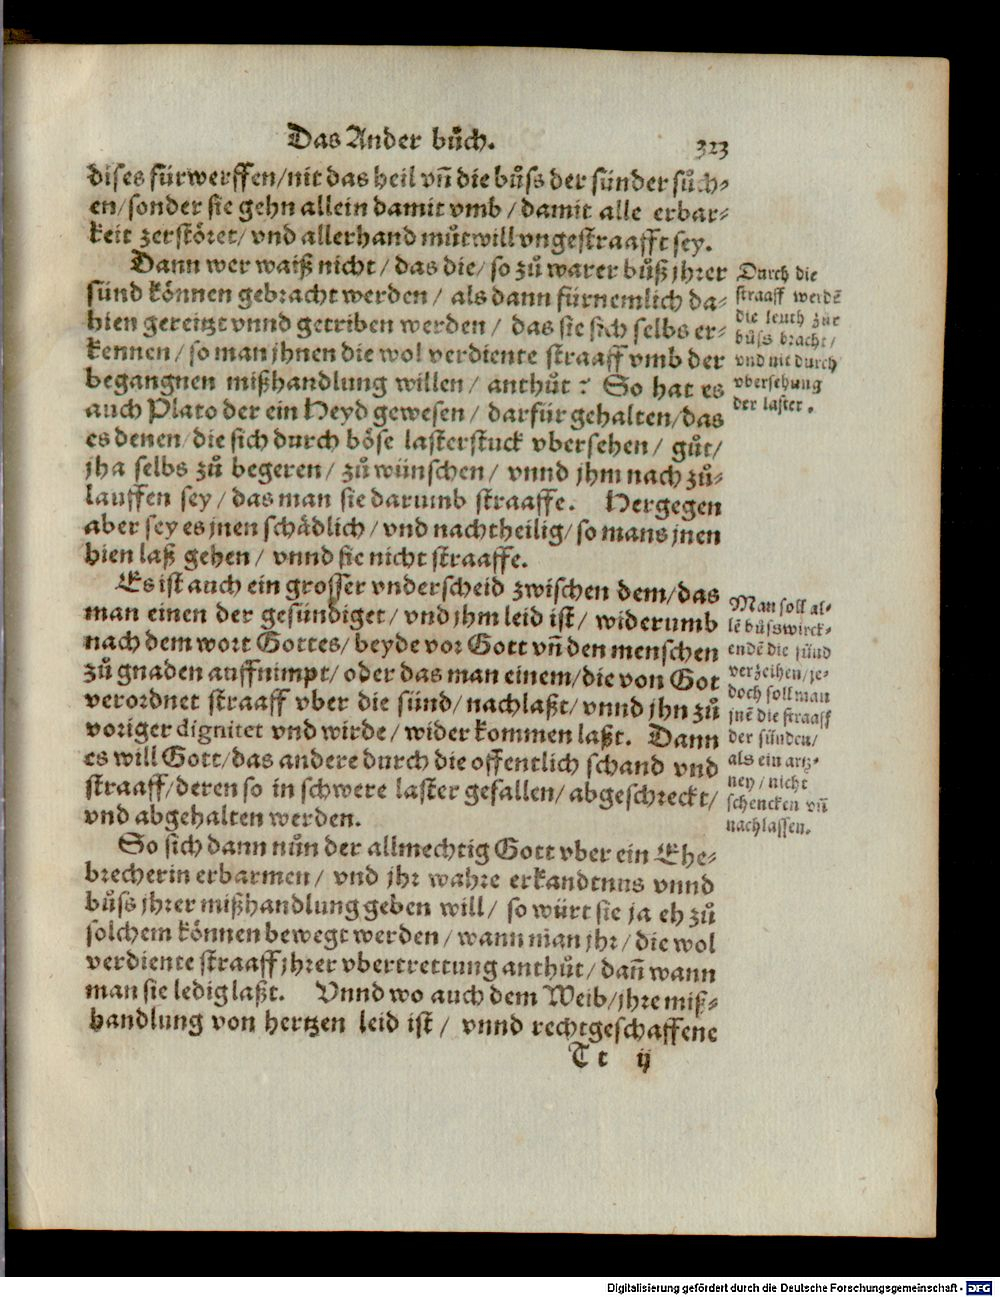 Das Ander bůch.
323
dises fürwerffen/nit das heil vñ die bůſs der sünder sůch⸗
en/sonder sie gehn allein damit vmb / damit alle erbar⸗
keit zerstöret/ vnd allerhand můtwill vngestraafft sey.
Dann wer waiß nicht / das die/ so zů warer bůß jhrer
sünd können gebracht werden / als dann fürnemlich da⸗
hien gereitzt vnnd getriben werden / das sie sich selbs er⸗
kennen / so man jhnen die wol verdiente straaff vmb der
begangnen mißhandlung willen / anthůt? So hat es
auch Plato der ein Heyd gewesen / darfür gehalten/das
es denen/die sich durch böse lasterstuck vbersehen / gůt/
jha selbs zů begeren / zů wünschen / vnnd jhm nach zů⸗
lauffen sey / das man sie darumb straaffe. Hergegen
aber sey es jnen schädlich/ vnd nachtheilig/ so mans jnen
hien laß gehen / vnnd sie nicht straaffe.
Es ist auch ein grosser vnderscheid zwischen dem/das
man einen der gesündiget / vnd jhm leid ist / widerumb
nach dem wort Gottes/ beyde vor Gott vñ den menschen
zů gnaden auffnimpt/ oder das man einem/die von Got
verordnet straaff vber die sünd/ nachlaßt/ vnnd jhn zů
voriger dignitet vnd wirde / wider kommen laßt. Dann
es will Gott/das andere durch die offentlich schand vnd
straaff/deren so in schwere laster gefallen/ abgeschreckt/
vnd abgehalten werden.
So sich dann nůn der allmechtig Gott vber ein Ehe⸗
brecherin erbarmen / vnd jhr wahre erkandtnus vnnd
bůſs jhrer mißhandlung geben will / so würt sie ja eh zů
solchem können bewegt werden / wann man jhr / die wol
verdiente straaff jhrer vbertrettung anthůt/ dañ wann
man sie ledig laßt. Vnnd wo auch dem Weib/jhre miß⸗
handlung von hertzen leid ist / vnnd rechtgeschaffene
T t ij
Durch die
straaff werdē
die leuth zur
bůſs bracht/
vnd nit durch
vbersehung
der laster.
Man soll al⸗
lē bůſswirck⸗
endē die sünd
verzeihen/je⸗
doch soll man
jnē die straaff
der sünden/
als ein artz⸗
ney / nicht
schencken vñ
nachlassen.
Digitalisierung gefördert durch die Deutsche Forschungsgemeinschaft - DFG